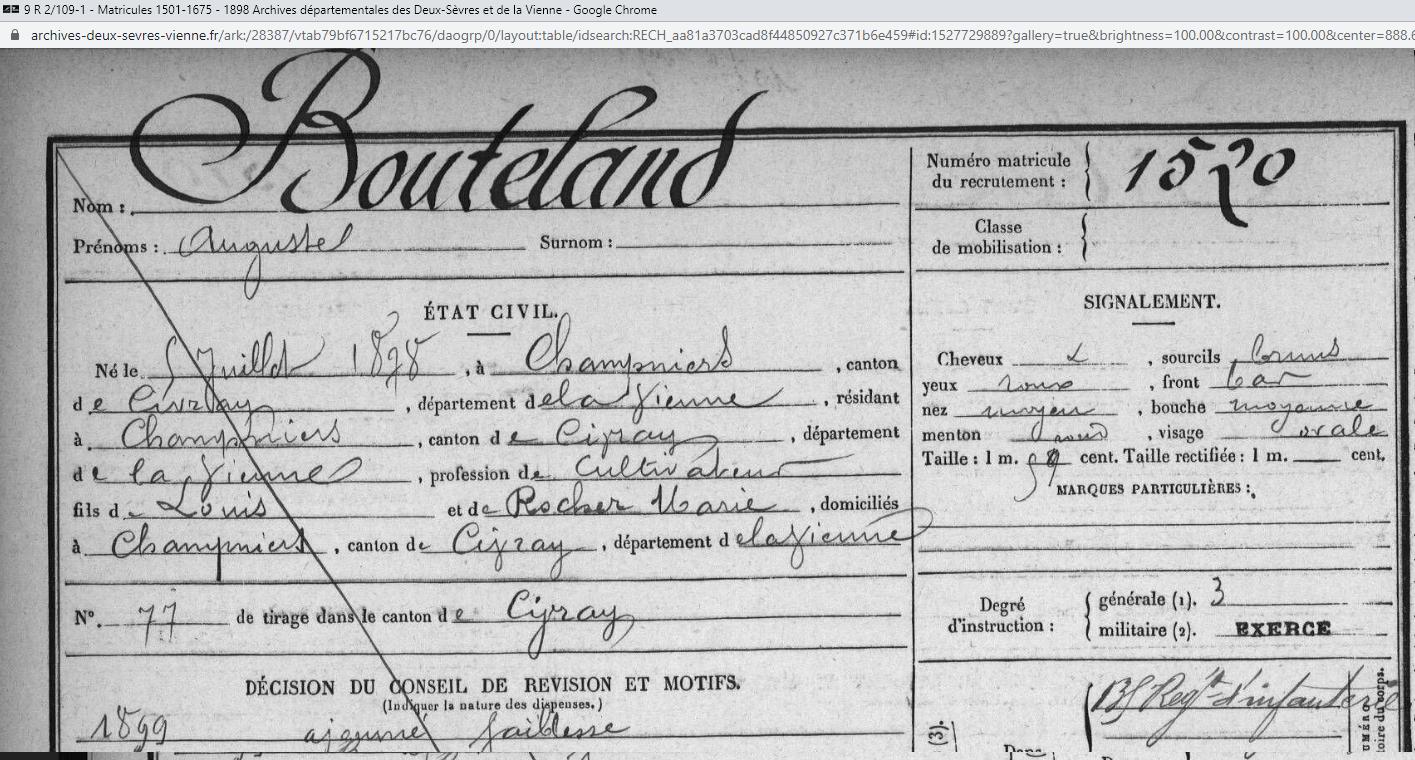 9 R 2/109-1 - Matricules 1501-1675 - 1898 Archives départementales des Deux-Sèvres et de la Vienne - Google Chrome
archives-deux-sevres-vienne.fr/ark:/28387/vtab79bf6715217bc76/daogrp/0/layout:table/idsearch:RECH_aa81a3703cad8f44850927c371b6e459#id:1527729889?gallery=true&brightness=100.00&contrast=100.00&center=888.6
Nom : Bouteland
Prénoms : Auguste Surnom :
ÉTAT CIVIL.
Né le 5 Juillet 1878, à Champniers, canton
de Civray, département de la Vienne, résidant
à Champniers, canton de Civray, département
de la Vienne, profession de Cultivateur
fils de Louis et de Rocher Marie, domiciliés
à Champniers, canton de Civray, département de la Vienne
N°. 77 de tirage dans le canton de Civray
DÉCISION DU CONSEIL DE REVISION ET MOTIFS.
(Indiquer la nature des dispenses.)
1899 ajourné faiblesse
Numéro matricule
du recrutement : 1520
Classe
de mobilisation :
SIGNALEMENT.
Cheveux, sourcils bruns
yeux roux, front
nez moyen, bouche moyenne
menton rond, visage ovale
Taille : 1 m. cent. Taille rectifiée : 1 m. cent.
MARQUES PARTICULIÈRES :
Degré
d'instruction :
générale (1). 3
militaire (2). EXERCÉ
Régt d'infanterie
(3).
Dans